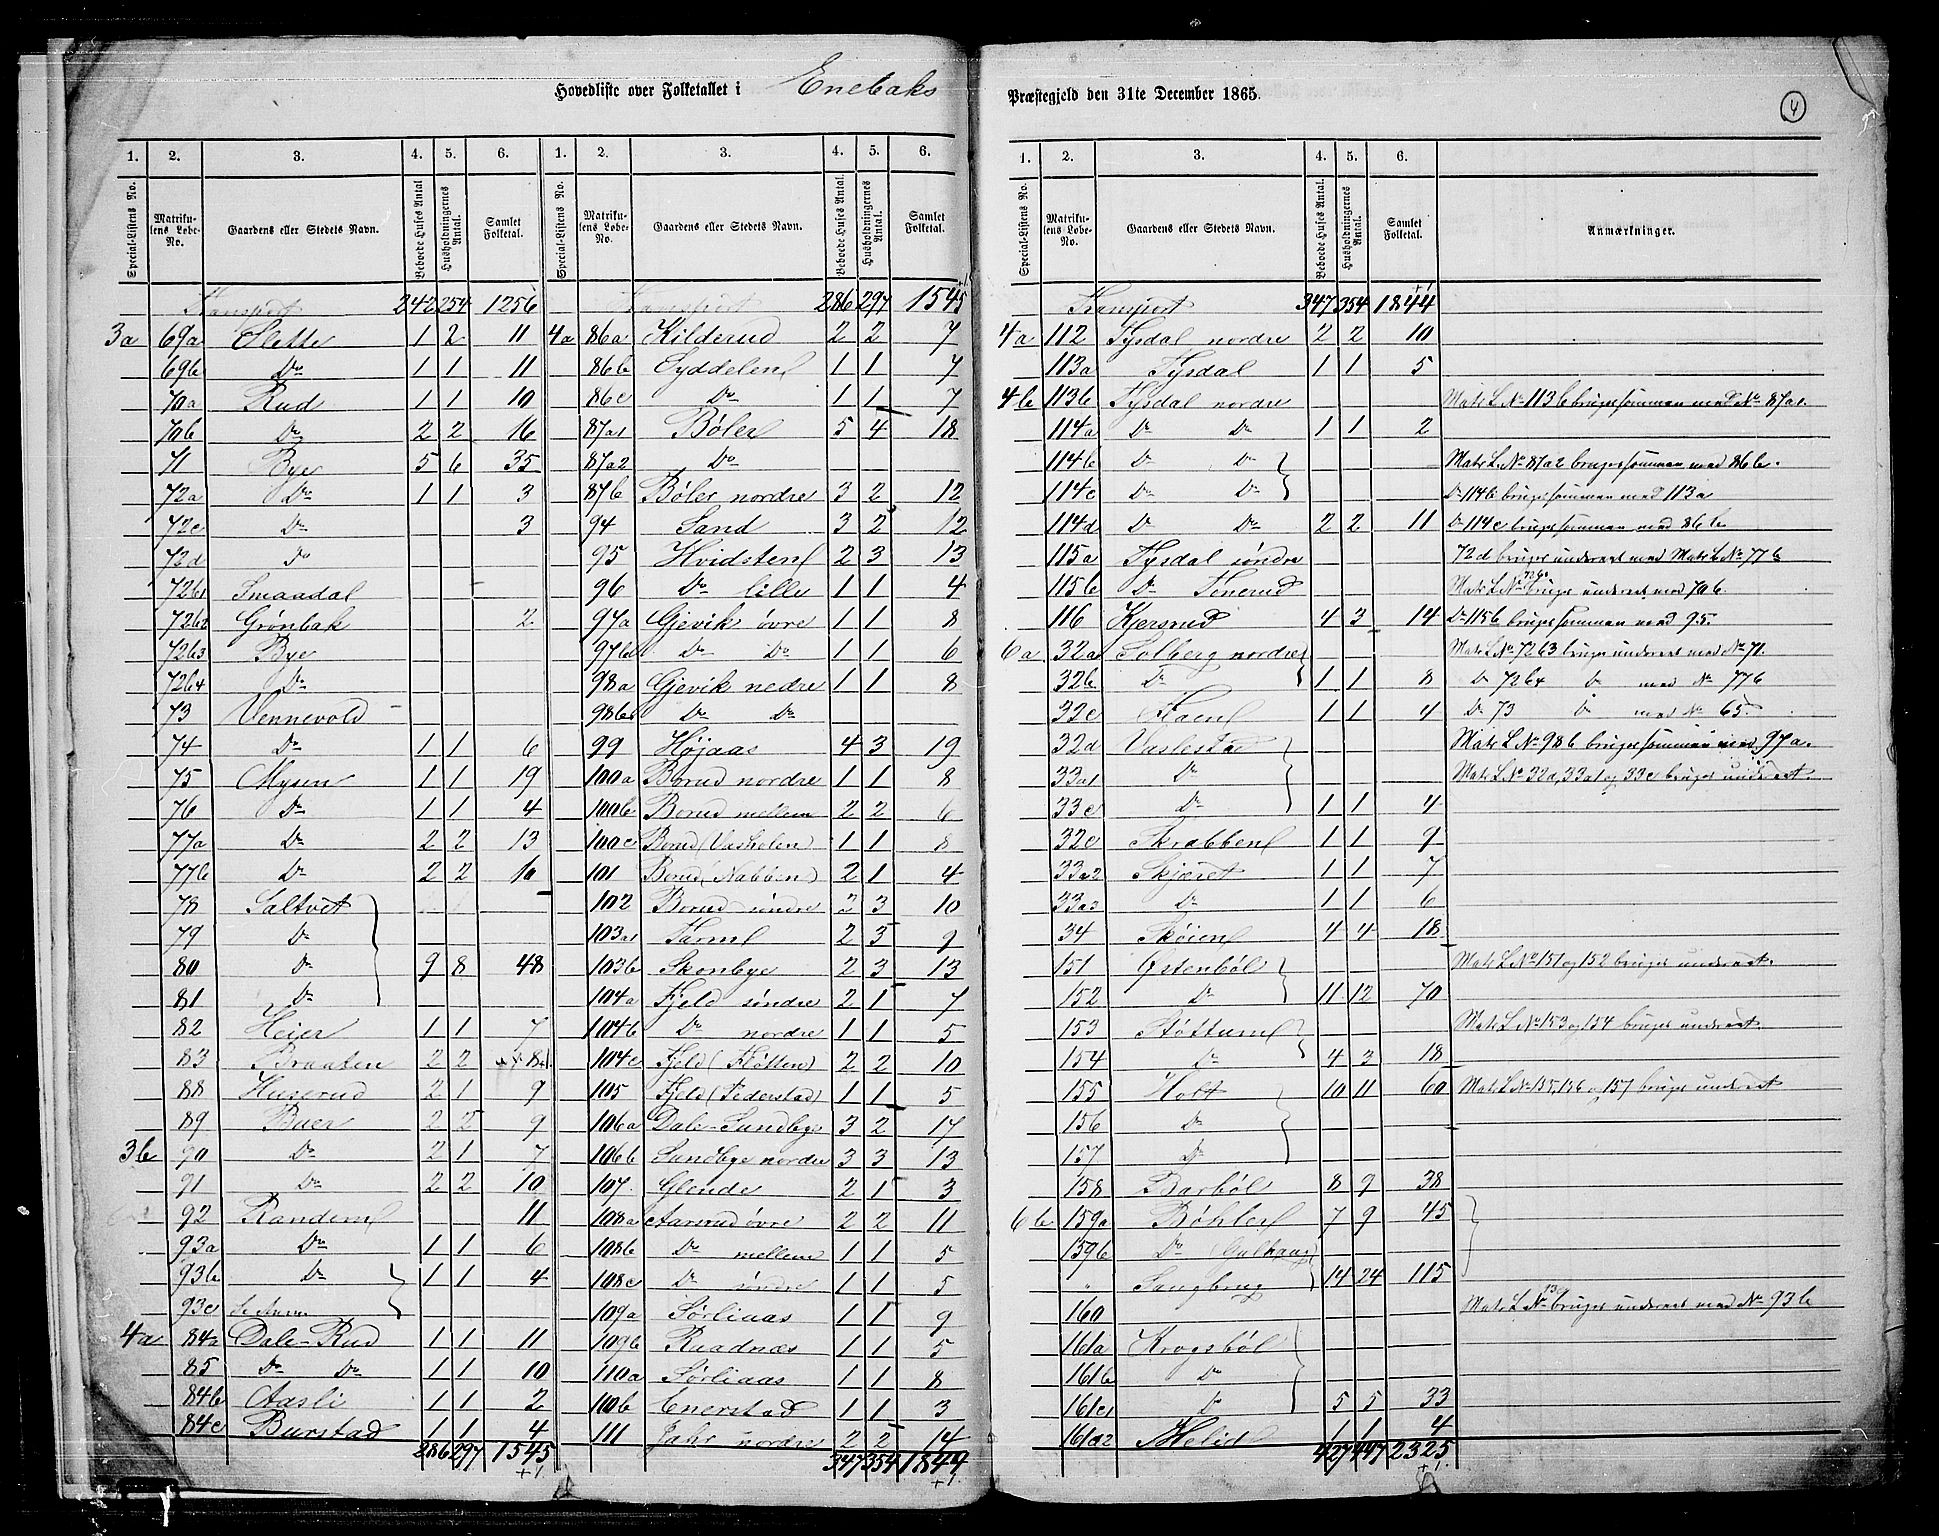 Hovedliste over Folketallet i Enebaks Præstegjeld den 31te December 1865.
4
1. 2. 3. 4. 5. 6. 1. 2. 3. 4. 5. 6.
Special-Listens No. Matrikulens Løbe-No. Gaardens eller Stedets Navn. Beboede Huses Antal Husholdningernes Antal. Samlet Folketal. Special-Listens No. Matrikulens Løbe-No. Gaardens eller Stedets Navn. Beboede Huses Antal. Husholdningernes Antal. Samlet Folketal.
Transport 242 254 1256
3a 69a Slette 1 2 11
69b Do 1 1 11
70a Rud 1 1 10
70b Do 2 2 16
71 Bye 5 6 35
72a Do 1 1 3
72c Do 3
72d Do
72b1 Smaadal
72b2 Grønbak 2
72b3 Bye
72b4 Do
73 Vennevold
74 Do 1 1 6
75 Mysen 1 1 19
76 Do 1 1 4
77a Do 2 2 13
77b Do 2 2 16
78 Saltvet
79 Do
80 Do 9 8 48
81 Do
82 Heier 1 1 7
83 Braaten 2 2 8
88 Huserud 2 1 9
89 Buer 2 2 9
3b 90 Do 2 1 7
91 Do 2 2 10
92 Randem 11
93a Do 1 1 6
93b Do 1 1 4
93c
4a 84a Dale-Rud 1 1 11
85 Do Do 1 1 10
84b Aasli 1 1 2
84c Burstad 1 1 4
286 297 1545
+1.
Transport 286 297 1545
+1
4a 86a Kilderud 2 2 7
86b Syddelen 1 1 7
86c Do 1 1 7
87a1 Bøler 5 4 18
87a2 Do
87b Bøler nordre 3 2 12
94 Sand 3 2 12
95 Hvidsten 2 3 13
96 Do lille 1 1 4
97a Gjevik øvre 1 1 8
97b Do Do 1 1 6
98a Gjevik nedre 1 1 8
98b Do Do
99 Højaas 4 3 19
100a Borud nordre 1 1 8
100b Borud mellem 2 2 6
100c Borud (Vaskolen) 1 1 8
101 Borud (Nabben) 2 1 4
102 Borud søndre 2 3 10
103a Tarml 2 3 9
103b Skonbye 2 3 13
104a Fjeld søndre 2 1 7
104b Do nordre 1 1 5
104c Fjeld (Fløtten) 2 2 10
105 Fjeld (Federstad) 1 1 5
106a Dale-Sundbye 3 2 17
106b Sundbye nordre 3 3 13
107. Glende 2 1 3
108a Aarrud øvre 2 2 11
108b Do mellem 1 1 5
108c Do søndre 1 1 5
109a Sørliaas 1 1 9
109b Raadnæs 1 1 5
110a Sørliaas 1 1 8
110b Enerstad 1 1 3
111 Jahr nordre 2 2 14
347 354 1844
+1.
1. 2. 3. 4. 5. 6.
Special-Listens No. Matrikulens Løbe-No. Gaardens eller Stedets Navn. Beboede Huses Antal. Husholdningernes Antal. Samlet Folketal. Anmærkninger.
Transport 347 354 1844
+1
4a 112 Tysdal nordre 2 2 10
113a Tysdal 1 1 5
4b 113b Tysdal nordre Matr L No 113b bruges sammen med No 87a1.
114a Do Do 1 1 2
114b Do Do Matr L No 87a2 bruges sammen med 86b.
114c Do Do Do 114b bruges sammen med 113a
114d Do Do 2 2 11 Do 114c bruges sammen med 86b
115a Tysdal søndre 72d bruges undereet med Matr L No 77b
115b Do Tenerud Matr L No 72b1 bruges undereet med 70b.
116 Kjersrud 4 3 14 Do 115b bruges sammen med 95.
6a 32a Solberg nordre Matr L No 72b3 bruges undereet med No 71.
32b Do 1 1 8 Do 72b4 Do med No 77b
32c Haem 1 1 4 Do 73 Do med No 65.
32d Vaslestad Matr L No 98b bruges sammen med 97a.
33a1 Do Matr L No 32a, 33a1 og 33c bruges undereet
33c Do 1 1 4
32e Skrabben 1 1 9
33a2 Skjæret 1 1 7
33a3 Do 1 1 6
34 Skøien 4 4 18
151 Østenbøl Matr L No 151 og 152 bruges undereet.
152 Do 11 12 70
153 Støttum Matr L No 153 og 154 bruges undereet.
154 Do 4 3 18
155 Holt 10 11 60 Matr L No 155, 156 og 157 bruges undereet
156 Do
157 Do
158 Barbøl 8 9 38
6b 159a Bøhler 7 9 45
159b Do (Gulhaug)
" Sangbrug 14 24 115
160 Matr L No bruges undereet med No 93b
161a Krogsbøl
161b Do
161c1 Do 5 5 33
161c2 Melid 1 1 4
427 447 2325
+1.